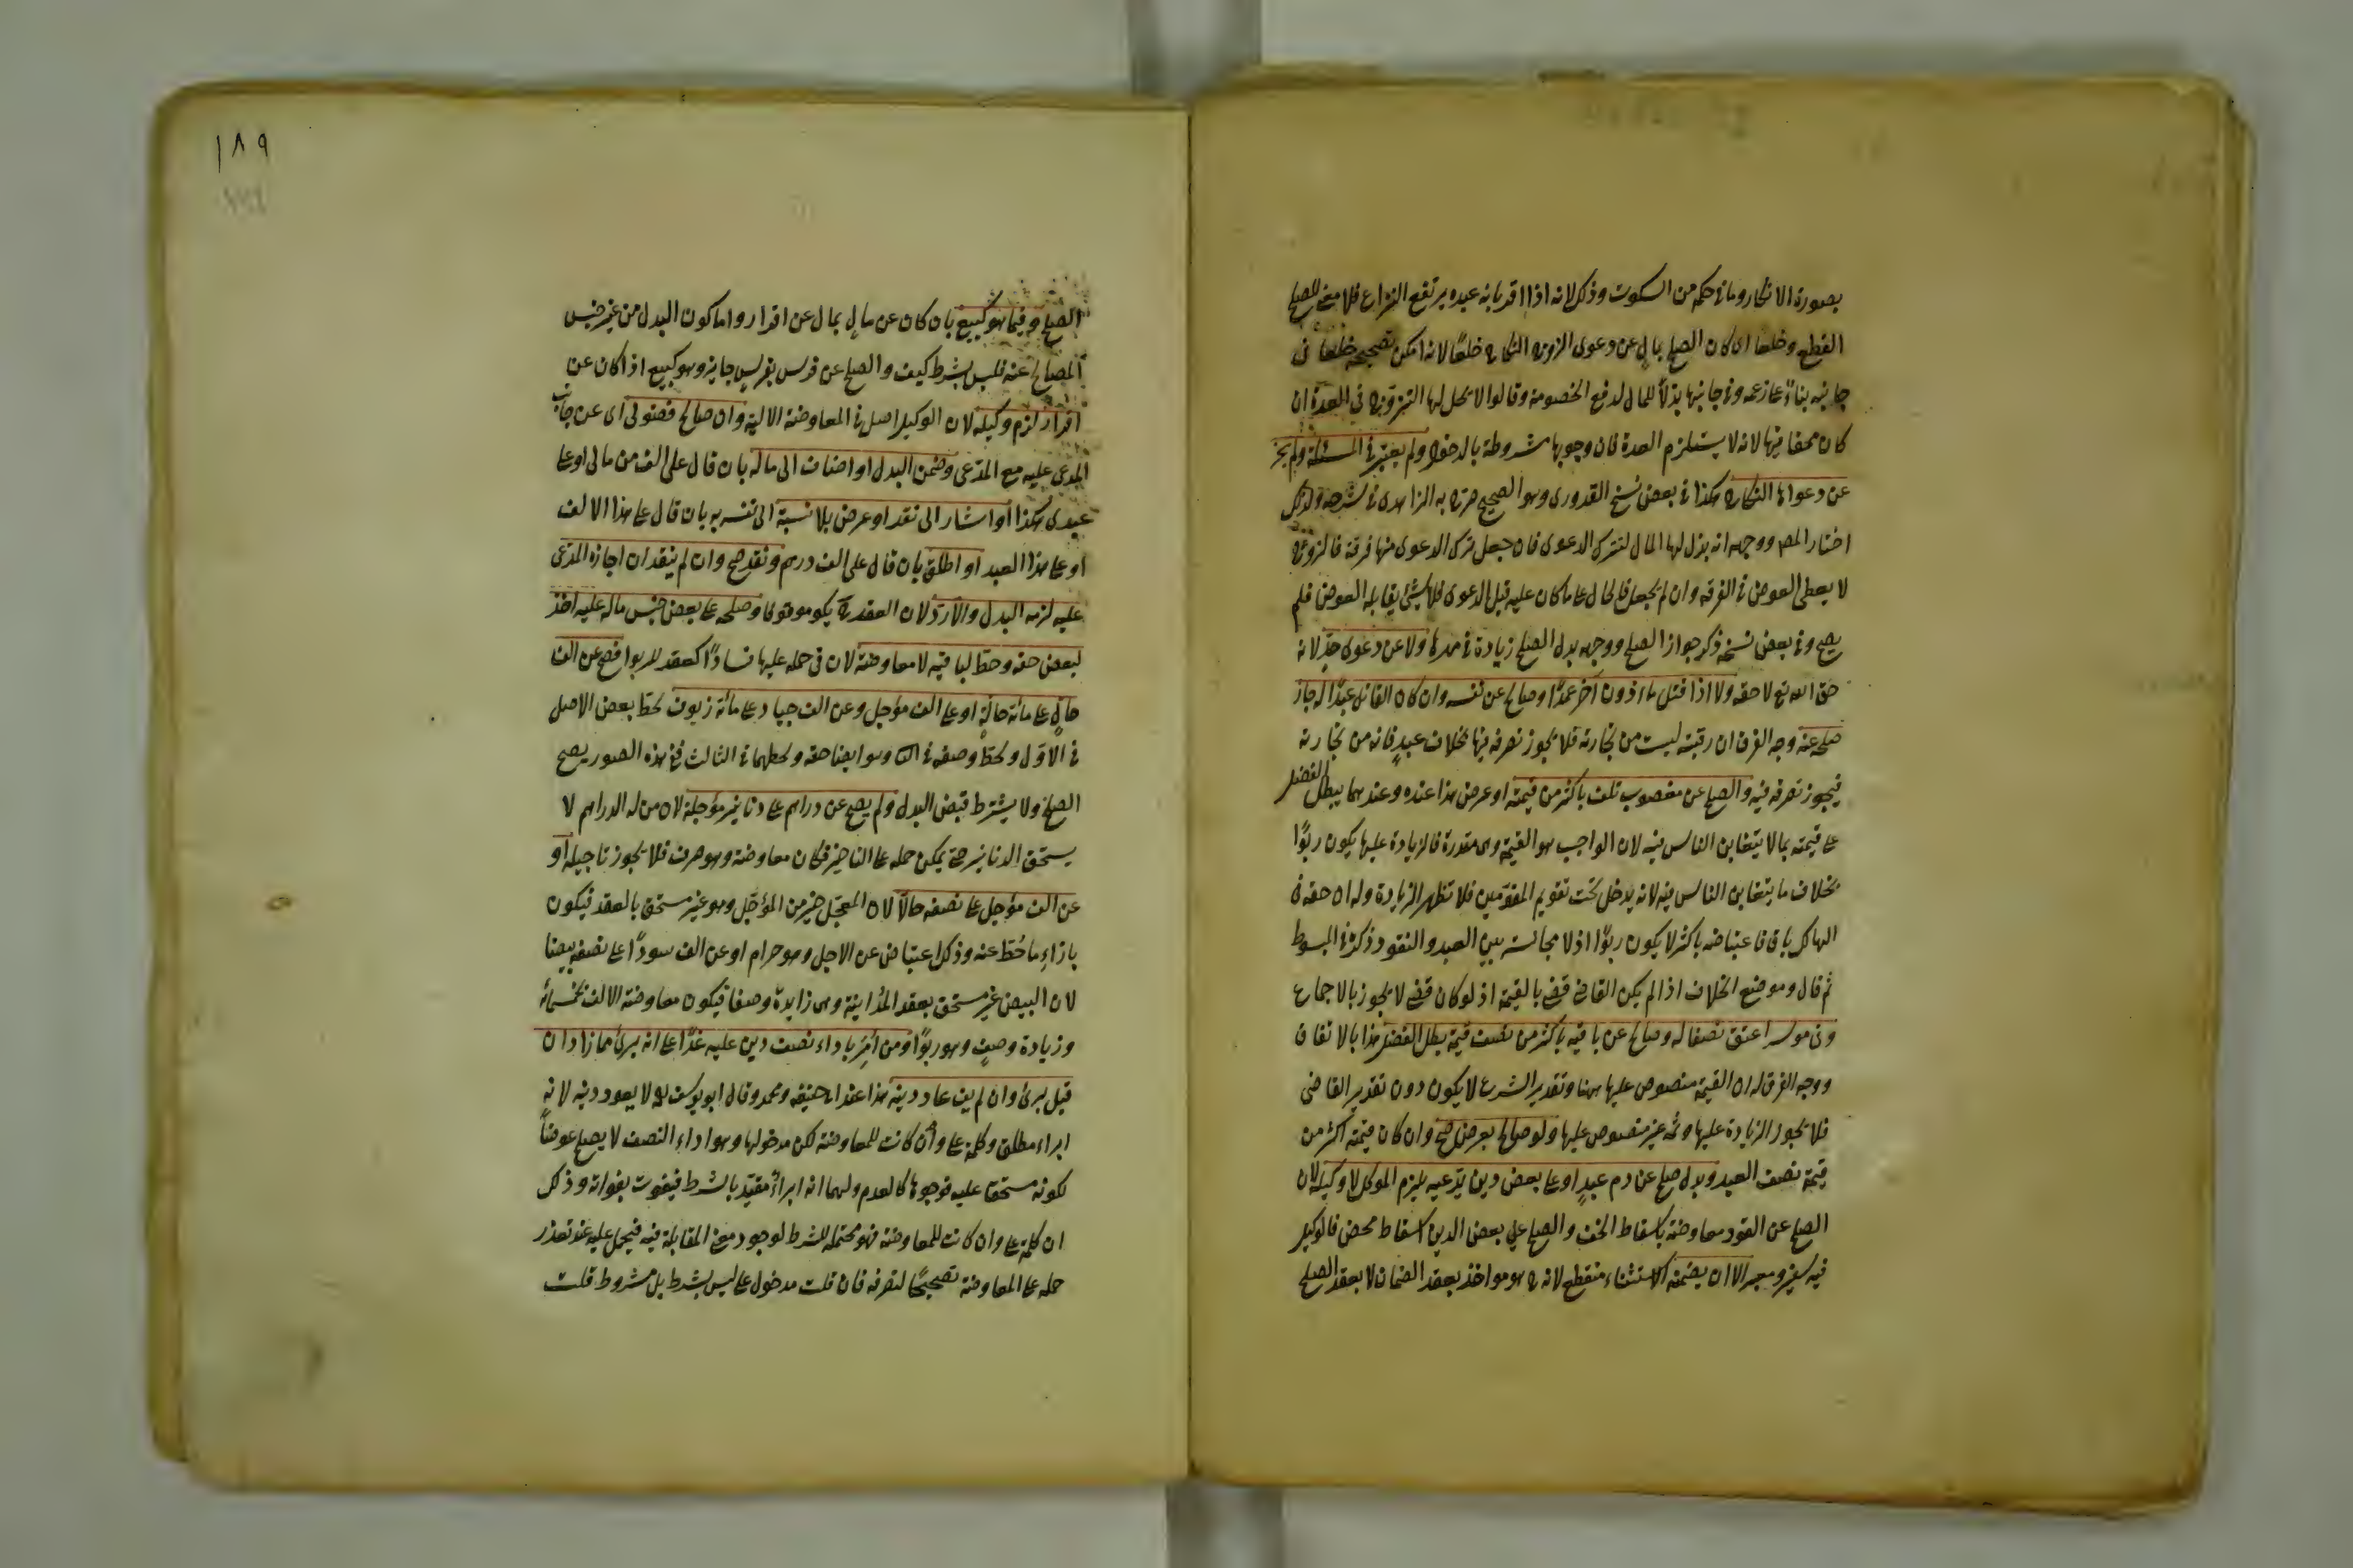 بصورة الانكار وما فى حكمه من السكوت وذلك لانه اذا اقر بانه عبده يرتفع النزاع فلا معنى للصلح
القطع وخلعا اى كان الصلح بمال عن دعوى الزوج النكاح خلعًا لانه امكن تصحيحه خلعًا فى
جانبه بناءً على زعمه وفى جانبها بذلًا للمال لدفع الخصومة وقالوا لا يحل لها التزوج فى العدة ان
كان محقا فيها لانه لا يستلزم العدة فان وجوبها مشروطة بالدخول ولم يعتبر فى المسئلة ولم يجز
عن دعواها النكاح هكذا فى بعض نسخ القدورى وهو الصحيح صرح به الزاهدى فى شرحه ولذلك
اختار المص ووجهه انه بذل لها المال لتترك الدعوى فان جعل ترك الدعوى منها فرقة فالزوج
لا يعطى العوض فى الفرقة وان لم يجعل فالحال على ما كان عليه قبل الدعوى فلا شئ يقابله العوض فلم
يصح وفى بعض نسخه ذكر جواز الصلح ووجهه بدل الصلح زيادة فى مهرها ولا عن دعوى حدٍّ لانه
حق الله تع لا حقه ولا اذا قتل ماءذون آخر عمدًا وصالح عن نفسه وان كان القاتل عبدًا له جاز
صلحه عنه وجه الفرق ان رقبته ليست من تجارته فلا يجوز تصرفه فيها بخلاف عبدٍ فانه من تجارته
فيجوز تصرفه فيه والصلح عن مغصوب تلف باكثر من قيمته او عرض هذا عنده وعندهما يبطل الفضل
على قيمته بما لا يتغابن الناس فيه لان الواجب هو القيمة وهى مقدرة فالزيادة عليها يكون ربوًا
بخلاف ما يتغابن الناس فيه لانه يدخل تحت تقويم المقوّمين فلا تظهر الزيادة وله ان حقه فى
الهالك باق فاعتياضه باكثر لا يكون ربوًا اذ لا مجانسة بين العبد والنقود ذكره فى المبسوط
ثم قال وموضع الخلاف اذا لم يكن القاضى قضى بالقيمة اذ لو كان قضى لا يجوز بالاجماع
وفى موسر اعتق نصفا له وصالح عن باقيه باكثر من نصف قيمته بطل الفضل هذا بالاتفاق
ووجه الفرق له ان القيمة منصوص عليها ههنا وتقدير الشرع لا يكون دون تقدير القاضى
فلا يجوز الزيادة عليها وثمه غير منصوص عليها ولو صالح بعرض صح وان كان قيمته اكثر من
قيمة نصف العبد وبدل صلح عن دم عبدٍ او على بعض دين يدّعيه يلزم الموكل لا وكيله لان
الصلح عن القود معاوضة باسقاط الحق والصلح على بعض الدين اسقاط محض فالوكيل
فيه سفير ومعبر الا ان يضمنه الاستثناء منقطع لانه ح هو مواخذ بعقد الضمان لا بعقد الصلح
١٨٩
الصلح وفيما هو كبيع بان كان عن مالٍ بمال عن اقرار واما كون البدل من غير جنس
المصالح عنه فليس بشرط كيف والصلح عن فرس بفرسٍ جايز وهو كبيع اذا كان عن
اقرار لزم وكيله لان الوكيل اصل فى المعاوضة المالية وان صالح فضولى اى عن جانب
المدعى عليه مع المدّعى وضمن البدل او اضاف الى ماله بان قال على الف من مالى او على
عبدى هكذا او اشار الى نقد او عرض بلا نسبة الى نفسه بان قال على هذا الالف
او على هذا العبد او اطلق بان قال على الف درهم ونقد صح وان لم ينقد ان اجازه المدّعى
عليه لزمه البدل والا ردّ لان العقد ح يكو موقوفا وصلحه على بعض جنس ماله عليه اخذ
لبعض حقه وحطّ لباقيه لا معاوضة لان فى حمله عليها فسادًا كعقد للربوا فصح عن الف
حالٍّ على مائة حالّةٍ او على الف مؤجل وعن الف جياد على مائة زيوف لحطّ بعض الاصل
فى الاوّل ولحطّ وصفه فى الثا وهو ايضا حقه ولحطهما فى الثالث ففى هذه الصور يصح
الصلح ولا يشترط قبض البدل ولم يصح عن دراهم على دنانير مؤجلة لان من له الدراهم لا
يستحق الدنانير حتى يمكن حمله على التاخير فكان معاوضة وهو صرف فلا يجوز تاجيله او
عن الف مؤجل على نصفه حالًّا لان المعجّل خير من المؤجّل وهو غير مستحق بالعقد فيكون
بازاءِ ما حُطّ عنه وذلك اعتياض عن الاجل وهو حرام او عن الف سودًا على نصفه بيضا
لان البيض غير مستحق بعقد المداينة وهى زايدة وصفا فيكون معاوضة الالف بخمسمائة
وزيادة وصفٍ وهو ربوًا ومن امر باداء نصف دين عليه غدًا على انه برئ مما زاد ان
قبل برئ وان لم يف عاد دينه هذا عند ابى حنيفه ومحمد وقال ابو يوسف له لا يعود دينه لانه
ابراء مطلق وكلمة على وان كانت للمعاوضة لكن مدخولها وهو اداء النصف لا يصلح عوضًا
لكونه مستحقا عليه فوجودها كالعدم ولهما انه ابراءٌ مقيّد بالشرط فيفوت بفواته وذلك
ان كلمة على وان كانت للمعاوضة فهو محتملة للشرط لوجود معنى المقابلة فيه فيحمل عليه عند تعذر
حمله على المعاوضة تصحيحًا لتصرفه فان قلت مدخول على ليس بشرط بل مشروط قلت